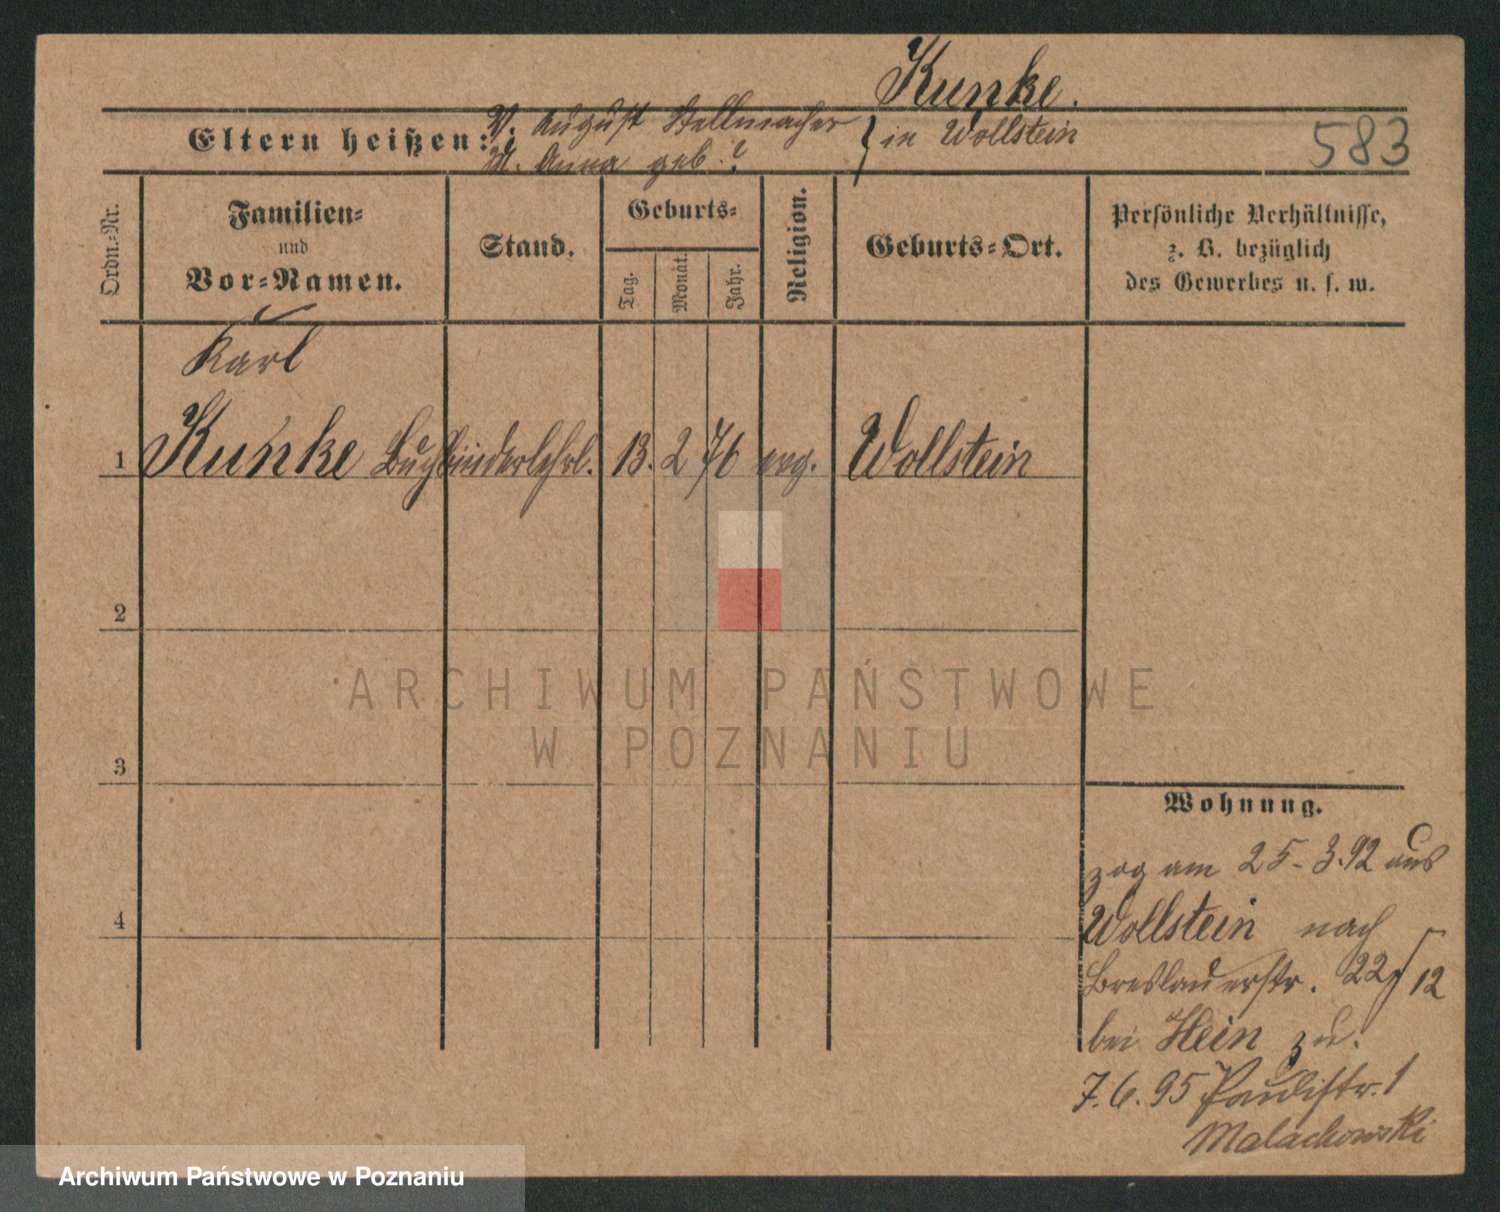 Kunke.
Eltern heißen: V. August Stellmacher } in Wollstein
M. Anna geb. ?
583
Ordn.-Nr.
Familien-
und
Vor-Namen.
Stand.
Geburts-
Tag.
Monat.
Jahr.
Religion.
Geburts-Ort.
Persönliche Verhältnisse,
z. B. bezüglich
des Gewerbes u. s. w.
Karl
1 Kunke Buchbinderlehrl. 13. 2 76 evg. Wollstein
2
3
4
ARCHIWUM PAŃSTWOWE
W POZNANIU
Wohnung.
zog am 25-3.92 aus
Wollstein nach
Breslauerstr. 22/12
bei Hein zu.
7.6.95 Paulistr. 1
Malachowski
Archiwum Państwowe w Poznaniu